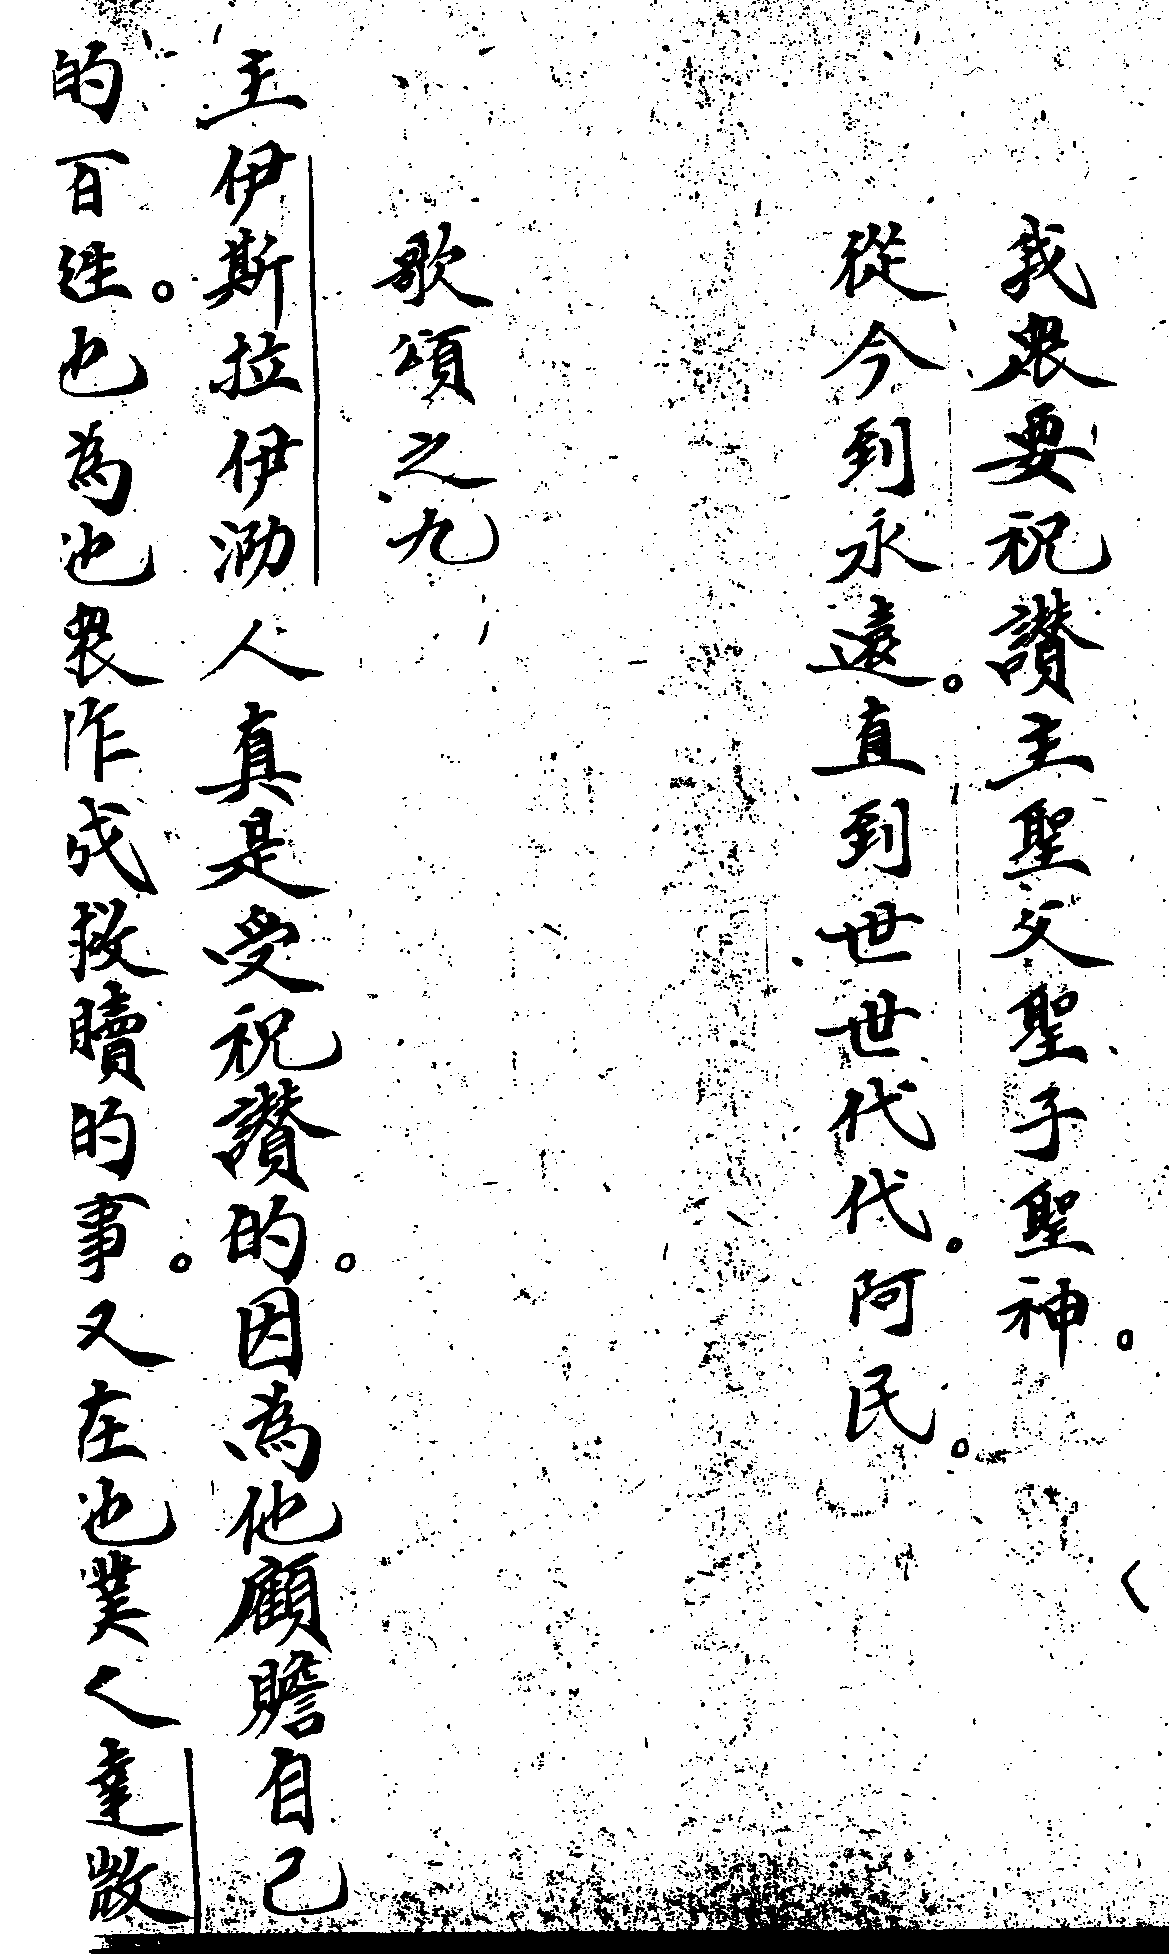 我眾要祝讚主聖父聖子聖神。
從今到永遠。直到世世代代。阿民。
歌頌之九
主伊斯拉伊泐人真是受祝讚的。因為他顧瞻自己
的百姓。也為他眾作成救贖的事。又在他僕人達微